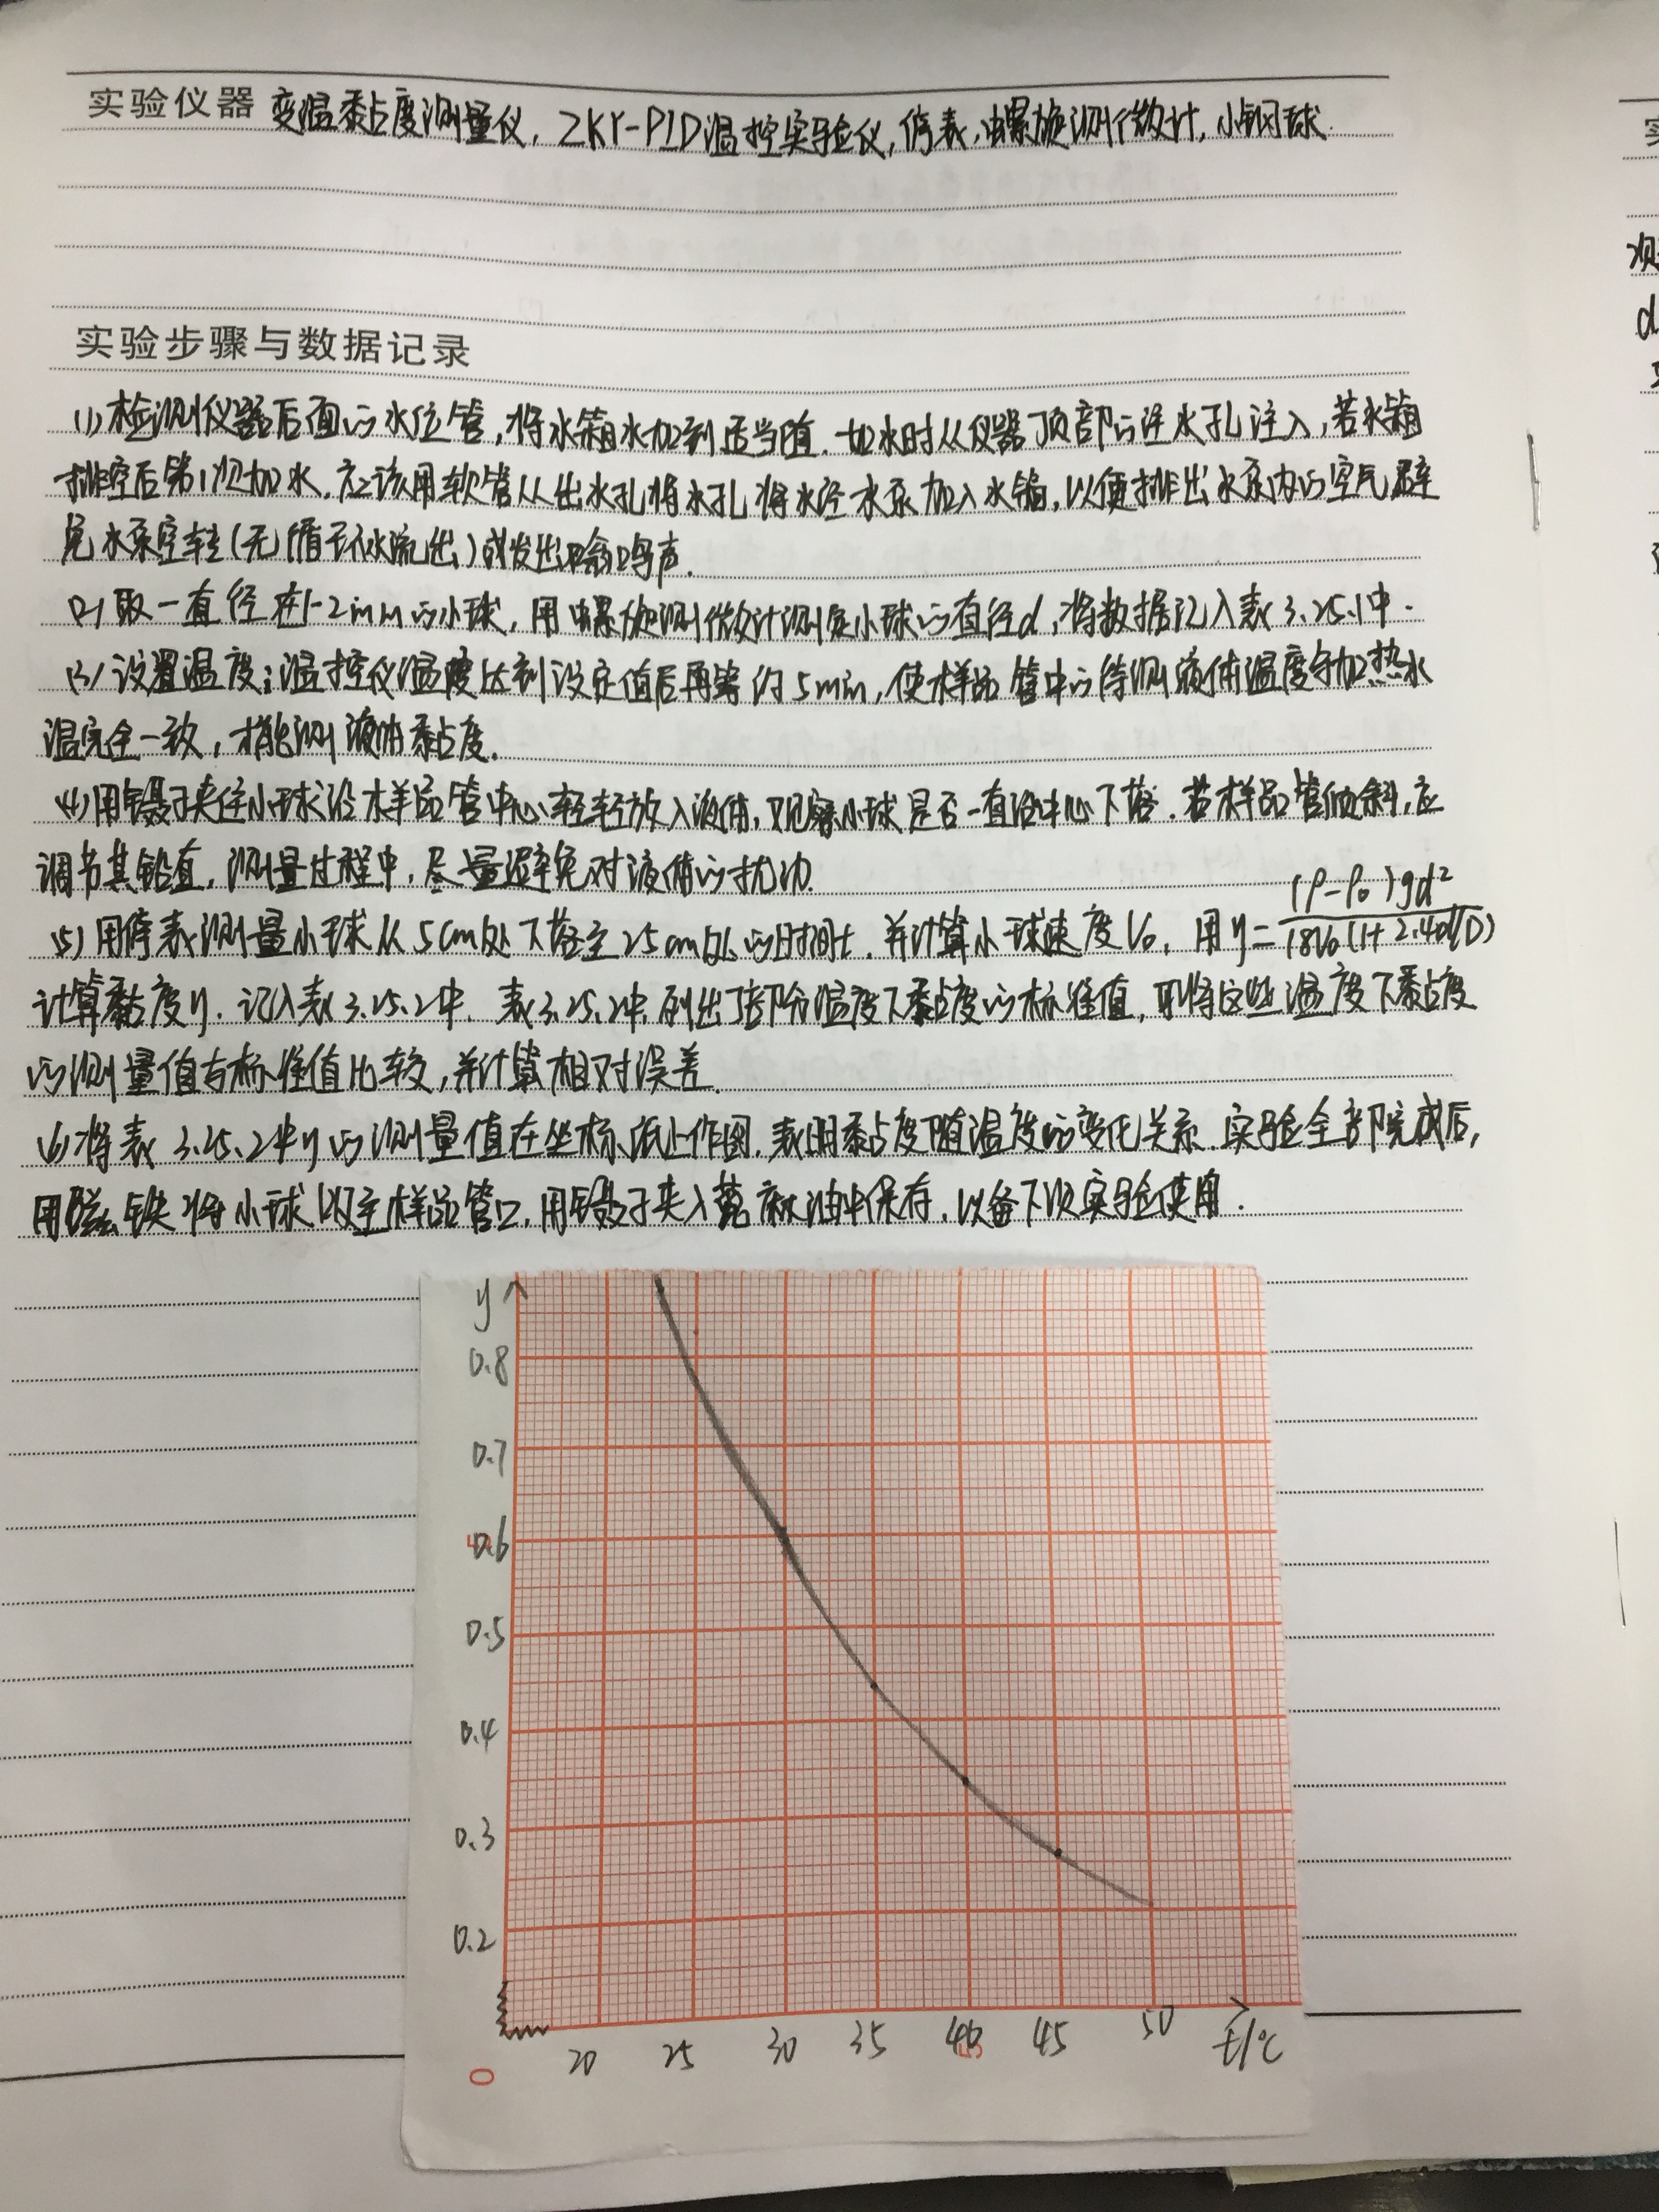 实验仪器 变温黏度测量仪, ZKY-PID温控实验仪, 停表, 螺旋测微计, 小钢球.
实验步骤与数据记录
(1) 检测仪器后面的水位管, 将水箱水加到适当值. 加水时从仪器顶部的注水孔注入, 若水箱
排空后第1次加水, 应该用软管从出水孔将水孔将水经水泵加入水箱, 以便排出水泵内的空气, 避
免水泵空转(无循环水流出)或发出嗡鸣声.
(2) 取一直径在1-2mm的小球, 用螺旋测微计测定小球的直径d, 将数据记入表3.25.1中.
(3) 设置温度: 温控仪温度达到设定值后再等约5min, 使样品管中的待测液体温度与加热水
温完全一致, 才能测液体黏度.
(4) 用镊子夹住小球沿样品管中心轻轻放入液体, 观察小球是否一直沿中心下落. 若样品管倾斜, 应
调节其铅直, 测量过程中, 尽量避免对液体的扰动.
(5) 用停表测量小球从5cm处下落至25cm处的时间t, 并计算小球速度V₀, 用y=(ρ-ρ₀)gd²/18V₀(1+2.4d/D)
计算黏度y, 记入表3.25.2中. 表3.25.2中, 列出了部分温度下黏度的标准值, 可将这些温度下黏度
的测量值与标准值比较, 并计算相对误差.
(6) 将表3.25.2中y的测量值在坐标纸上作图, 表明黏度随温度的变化关系. 实验全部完成后,
用磁铁将小球吸至样品管口, 用镊子夹入蓖麻油中保存, 以备下次实验使用.
y
0.8
0.7
0.6
0.5
0.4
0.3
0.2
0
20 25 30 35 40 45 50 t/℃